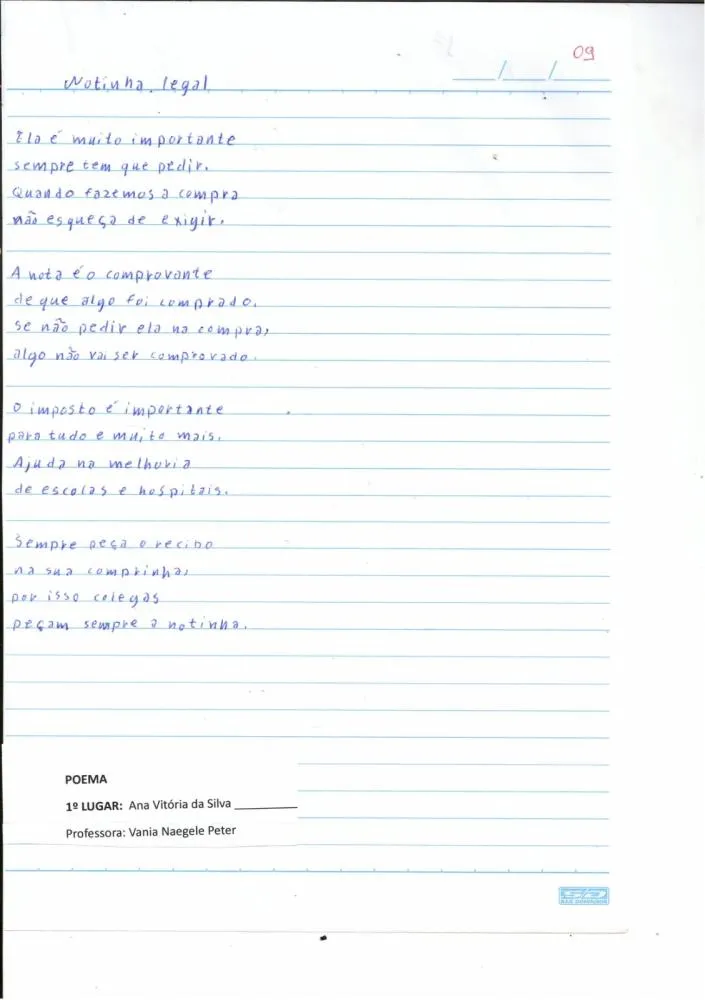 09
__/__/__
Notinha legal
Ela é muito importante
sempre tem que pedir.
Quando fazemos a compra
não esqueça de exigir.
A nota é o comprovante
de que algo foi comprado.
se não pedir ela na compra,
algo não vai ser comprovado.
O imposto é importante
para tudo e muito mais.
Ajuda na melhoria
de escolas e hospitais.
Sempre peça o recibo
na sua comprinha,
por isso colegas
peçam sempre a notinha.
POEMA
1º LUGAR: Ana Vitória da Silva ________
Professora: Vania Naegele Peter
SÃO DOMINGOS